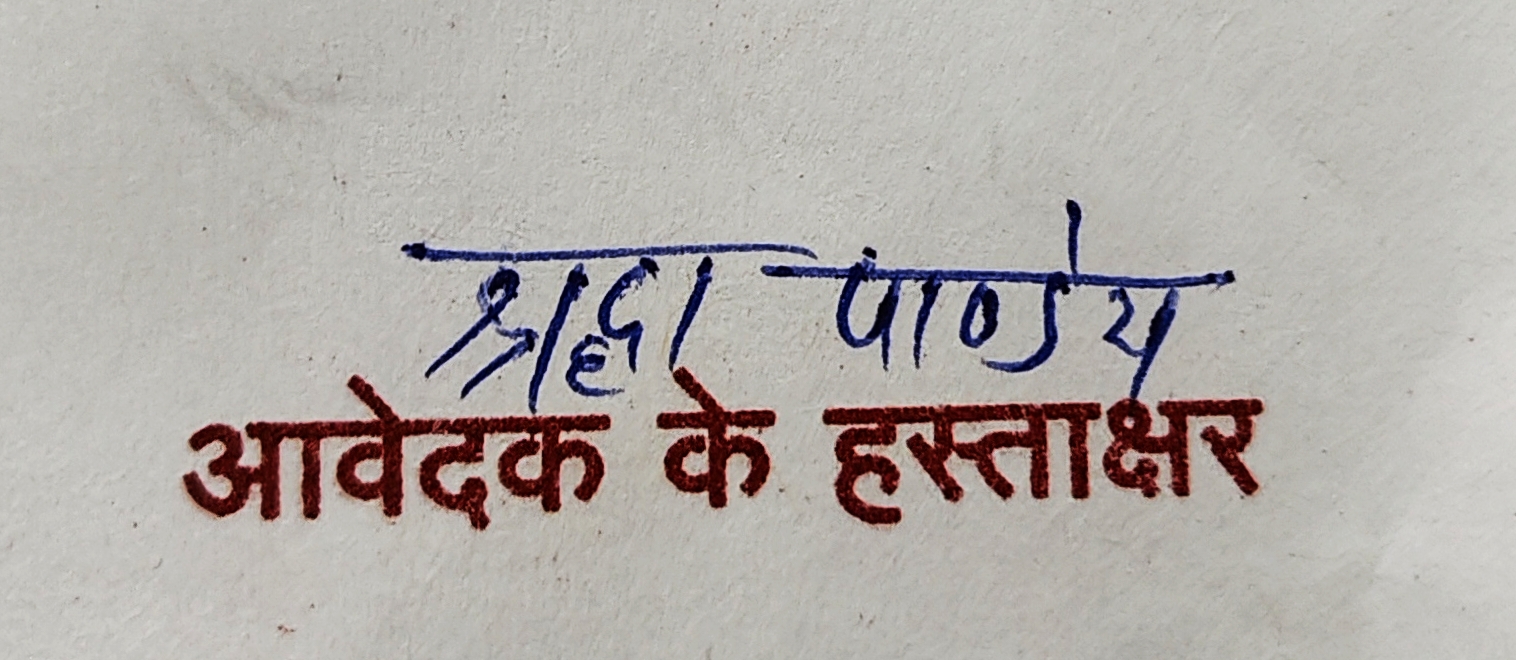 श्रद्धा पाण्डेय
आवेदक के हस्ताक्षर